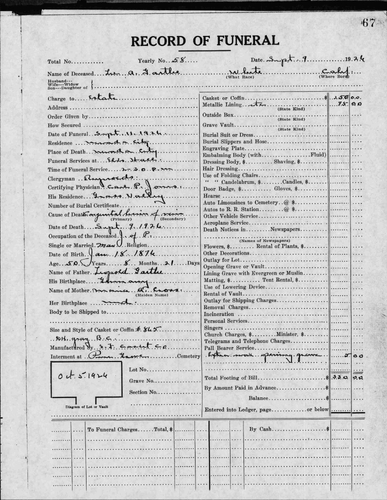 67
RECORD OF FUNERAL
Total No. Yearly No. 58 Date Sept. 9 1926
Name of Deceased A. White Calif.
(What Race) (Where Born)
Husband—
Wife—Widow
Son—Daughter of
Charge to Estate
Address
Order Given by
How Secured
Date of Funeral Sept. 11. 1926
Residence Nevada City
Place of Death Nevada City
Funeral Services at Elks Hall
Time of Service 2:30 P.M
Clergyman
Certifying Physician Carl P. Jones
His Residence Grass Valley
Number of Burial Certificate
Cause of Death
(Primary) (Secondary)
Date of Death Sept. 9 1926
Occupation of the Deceased J. of P.
Single or Married Mar Religion
Date of Birth Jan. 18 1876
Age 50 Years 8 Months 21 Days
Name of Father Leopold
His Birthplace Germany
Name of Mother
(Maiden Name)
Her Birthplace Md.
Body to be Shipped to
Size and Style of Casket or Coffin # 865
gray B.C.
Manufactured by
Interment at Pine Grove Cemetery
Oct 5 1926
Diagram of Lot or Vault
Lot No.
Grave No.
Section No.
Casket or Coffin $ 250 00
Metallic Lining 75 00
(State Kind)
Outside Box
(State Kind)
Grave Vault
(State Kind)
Burial Suit or Dress
Burial Slippers and Hose
Engraving Plate
Embalming Body (with Fluid)
Dressing Body, $ Shaving, $
Hair Dressing
Use of Folding Chairs
" " Candelabrum, $ Candles, $
Door Badge, $ Gloves, $
Hearse
Autos Limousines to Cemetery @ $
Autos to R. R. Station @ $
Other Vehicle Service
Aeroplane Service
Death Notices in Newspapers
(Names of Newspapers)
Flowers, $ Rental of Plants, $
Other Decorations
Outlay for Lot
Opening Grave or Vault
Lining Grave with Evergreen or Muslin
Matting, $ Tent Rental, $
Use of Lowering Device
Rental of Vault
Outlay for Shipping Charges
Removal Charges
Incineration
Personal Services
Singers
Church Charges, $ Minister, $
Telegrams and Telephone Charges
Pall Bearer Service
Extra opening grave 5 00
Total Footing of Bill $ 330 00
By Amount Paid in Advance
Balance $
Entered into Ledger, page or below
To Funeral Charges Total, $ By Cash $